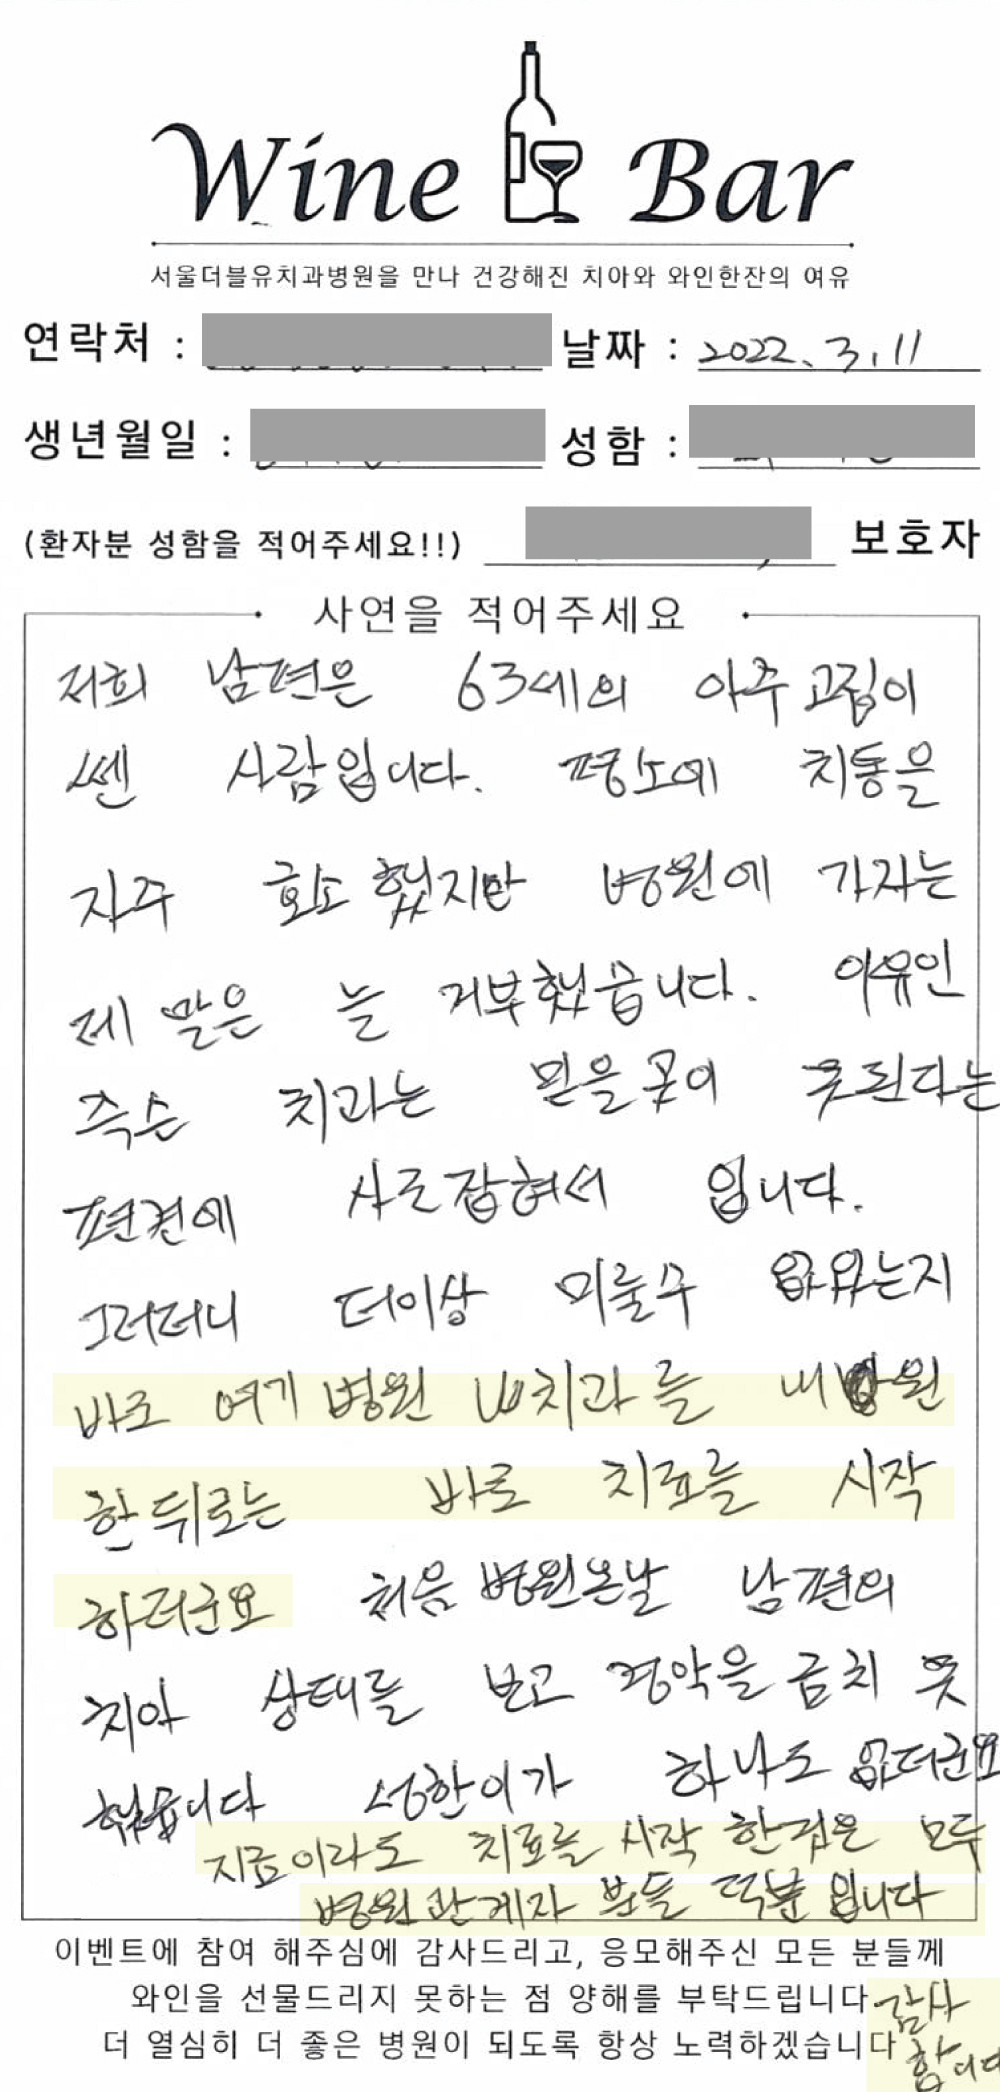 Wine Bar
서울더블유치과병원을 만나 건강해진 치아와 와인한잔의 여유
연락처 : 날짜 : 2022. 3. 11
생년월일 : 성함 :
(환자분 성함을 적어주세요!!) 보호자
사연을 적어주세요
저희 남편은 63세의 아주 고집이
쎈 사람입니다. 평소에 치통을
자주 호소했지만 병원에 가자는
제 말은 늘 거부했습니다. 이유인
즉슨 치과는 믿을곳이 못된다는
편견에 사로잡혀서 입니다.
그러더니 더이상 미룰수 없었는지
바로 여기 병원 W치과를 내병원
한뒤로는 바로 치료를 시작
하더군요 처음 병원온날 남편의
치아 상태를 보고 경악을 금치 못
했습니다 성한이가 하나도 없더군요
지금이라도 치료를 시작 한점은 모두
병원 관계자 분들 덕분 입니다
이벤트에 참여 해주심에 감사드리고, 응모해주신 모든 분들께
와인을 선물드리지 못하는 점 양해를 부탁드립니다
더 열심히 더 좋은 병원이 되도록 항상 노력하겠습니다
감사
합니다